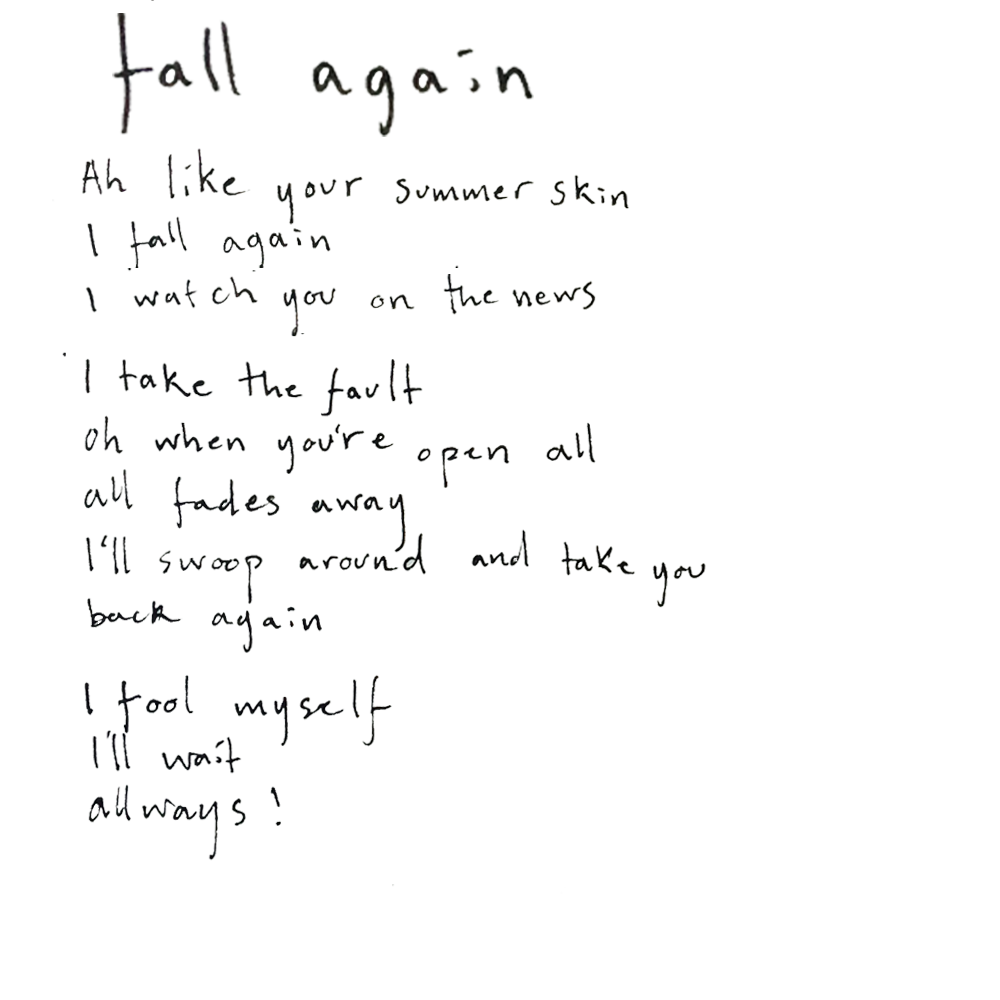 fall again
Ah like your summer skin
I fall again
I watch you on the news
I take the fault
oh when you're open all
all fades away
I'll swoop around and take you
back again
I fool myself
I'll wait
allways!